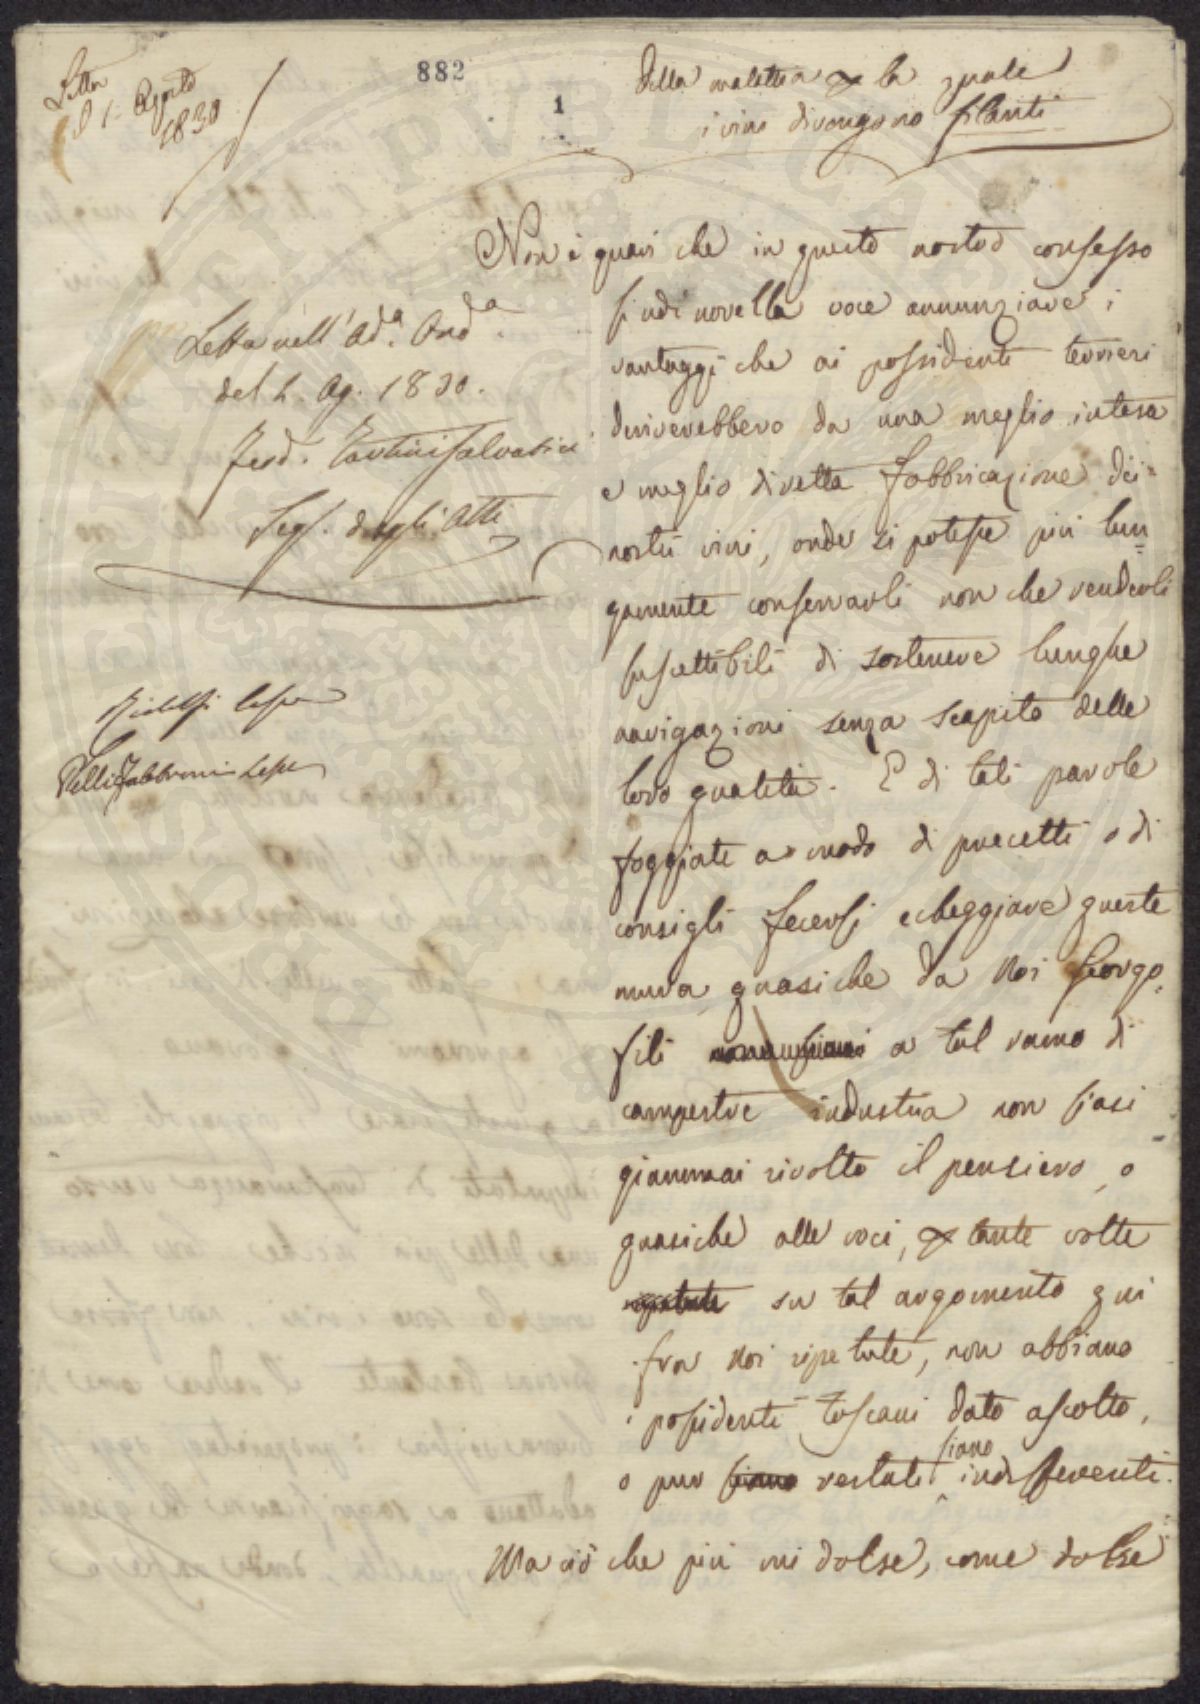 Letta
il 1. Agosto
1830
882
1
Della malattia per la quale
i vini divengono filanti
Letta nell' Ad.a Ord.a
del 1. Ag. 1830.
Ferd. Tartini Salvatici
Seg. degli Atti
Ridolfi
Pelli Fabbroni
Non è guari che in questo nostro consesso
s'udì novella voce annunziare i
vantaggi che ai possidenti terrieri
deriverebbero da una meglio intesa
e meglio diretta fabbricazione dei
nostri vini, onde si potesse più lun=
gamente conservarli non che renderli
suscettibili di sostenere lunghe
navigazioni senza scapito delle
loro qualità. E di tali parole
foggiate a modo di precetti o di
consigli fecersi echeggiare queste
mura, quasi che da noi Georgo=
fili a tal ramo di
campestre industria non siasi
giammai rivolto il pensiero, o
quasiche alle voci, per tante volte
su tal argomento qui
fra noi ripetute, non abbiano
i possidenti toscani dato ascolto,
o pur siano restati siano indifferenti.
Ma ciò che più mi dolse, come dolse